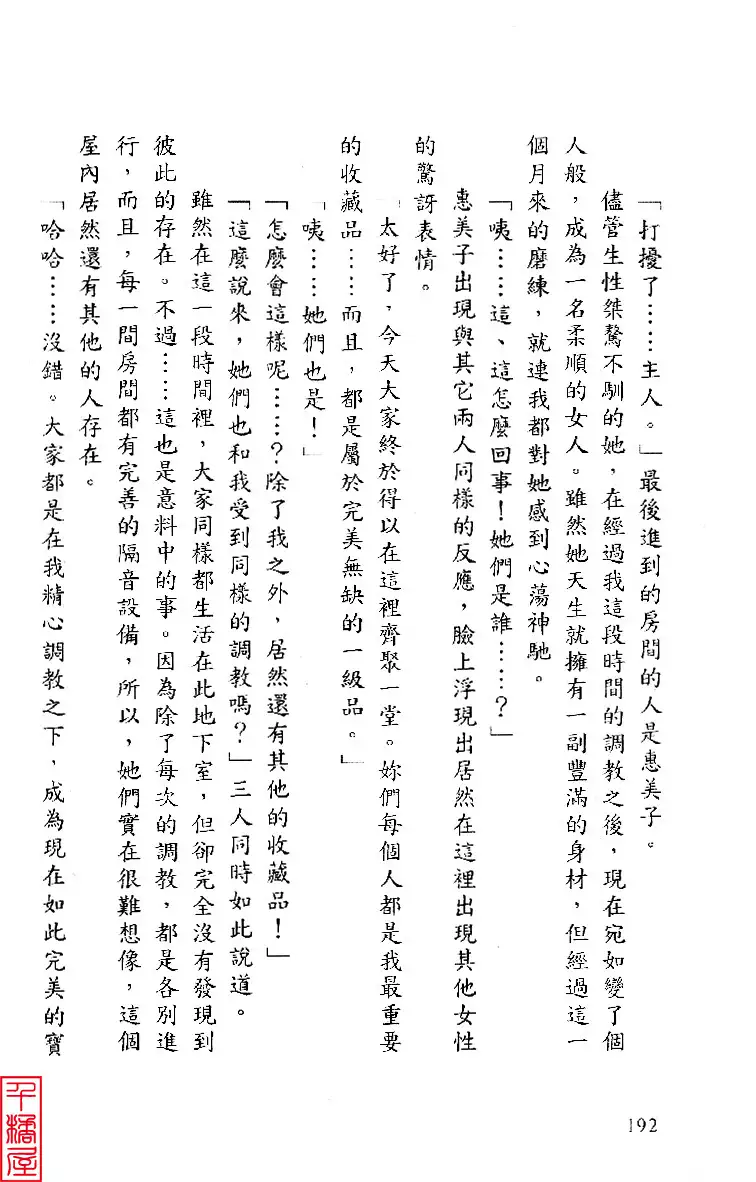 「打擾了……主人。」最後進到的房間的人是惠美子。
儘管生性桀驁不馴的她，在經過我這段時間的調教之後，現在宛如變了個
人般，成為一名柔順的女人。雖然她天生就擁有一副豐滿的身材，但經過這一
個月來的磨練，就連我都對她感到心蕩神馳。
「咦……這、這怎麼回事！她們是誰……？」
惠美子出現與其它兩人同樣的反應，臉上浮現出居然在這裡出現其他女性
的驚訝表情。
「太好了，今天大家終於得以在這裡齊聚一堂。妳們每個人都是我最重要
的收藏品……而且，都是屬於完美無缺的一級品。」
「咦……她們也是！」
「怎麼會這樣呢……？除了我之外，居然還有其他的收藏品！」
「這麼說來，她們也和我受到同樣的調教嗎？」三人同時如此說道。
雖然在這一段時間裡，大家同樣都生活在此地下室，但卻完全沒有發現到
彼此的存在。不過……這也是意料中的事。因為除了每次的調教，都是各別進
行，而且，每一間房間都有完善的隔音設備，所以，她們實在很難想像，這個
屋內居然還有其他的人存在。
「哈哈……沒錯。大家都是在我精心調教之下，成為現在如此完美的寶
192
千橘屋